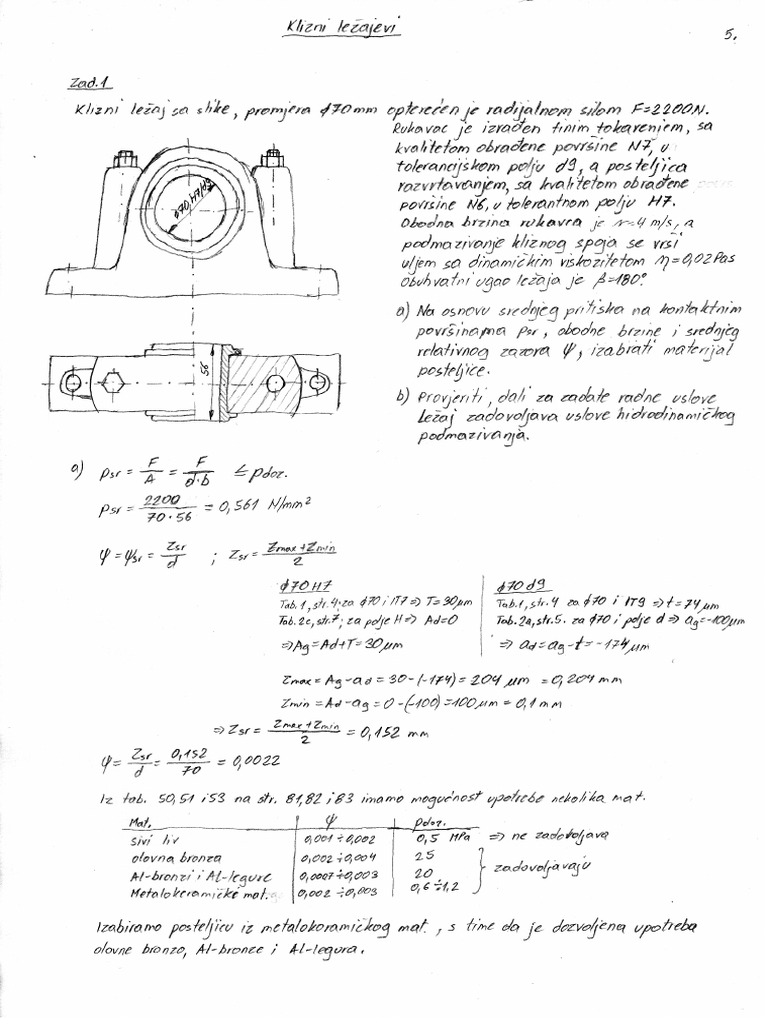 Klizni ležajevi
5.
Zad.1
Klizni ležaj sa slike, promjera ϕ70mm opterećen je radijalnom silom F=2200N.
Rukavac je izrađen finim tokarenjem, sa
kvalitetom obrađene površine N7, u
tolerancijskom polju d9, a posteljica
razvrtavanjem, sa kvalitetom obrađene
površine N6, u tolerantnom polju H7.
Obodna brzina rukavca je v=4 m/s, a
podmazivanje kliznog spoja se vrši
uljem sa dinamičkim viskozitetom η=0,02Pas
Obuhvatni ugao ležaja je β=180°.
ϕ70H7/d9
56
a) Na osnovu srednjeg pritiska na kontaktnim
površinama psr, obodne brzine i srednjeg
relativnog zazora ψ, izabrati materijal
posteljice.
b) Provjeriti, dali za zadate radne uslove
ležaj zadovoljava uslove hidrodinamičkog
podmazivanja.
a) psr = F/A = F/d·b ≤ pdoz.
psr = 2200/70·56 = 0,561 N/mm²
ψ = ψsr = Zsr/d ; Zsr = Zmax+Zmin/2
ϕ70H7
Tab.1, str.4; za ϕ70 i IT7 ⇒ T=30μm
Tab.2c, str.7; za polje H ⇒ Ad=0
⇒ Ag=Ad+T=30μm
ϕ70d9
Tab.1, str.4 za ϕ70 i IT9 ⇒ t=74μm
Tab.2a, str.5. za ϕ70 i polje d ⇒ ag=-100μm
⇒ ad=ag-t=-174μm
Zmax=Ag-ad=30-(-174)=204 μm =0,204 mm
Zmin=Ad-ag=0-(-100)=100μm=0,1mm
⇒ Zsr= Zmax+Zmin/2 = 0,152 mm
ψ= Zsr/d = 0,152/70 = 0,0022
Iz tab. 50,51 i 53 na str. 81,82 i 83 imamo mogućnost upotrebe nekolika mat.
Mat. ψ pdoz.
sivi liv 0,001÷0,002 0,5 MPa ⇒ ne zadovoljava
olovna bronza 0,002÷0,004 25
Al-bronzi i Al-legure 0,0007÷0,003 20 zadovoljavaju
Metalokeramički mat. 0,002÷0,003 0,6÷1,2
Izabiramo posteljicu iz metalokoramičkog mat., s time da je dozvoljena upotreba
olovne bronze, Al-bronze i Al-legura.